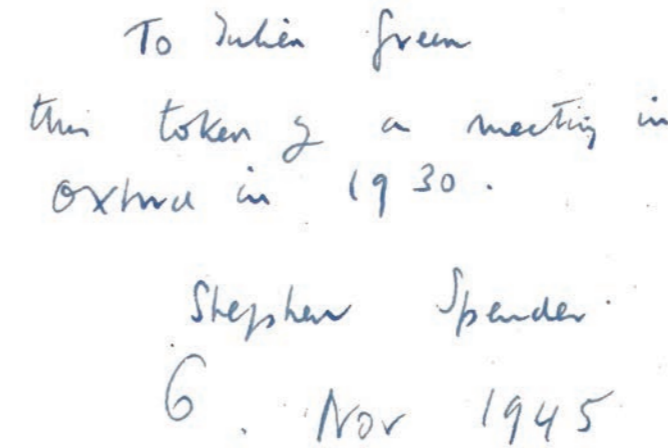 To Julien Green
this token of a meeting in
Oxford in 1930.
Stephen Spender.
6. Nov 1945